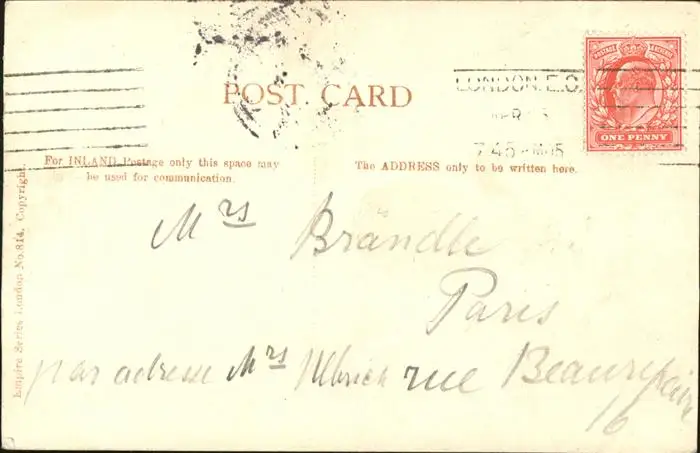 POST CARD
POSTAGE REVENUE
ONE PENNY
LONDON. E.C.
7.45 PM 05
For INLAND Postage only this space may
be used for communication.
The ADDRESS only to be written here.
Mrs Brändle
Paris
par adresse Mrs Ulbrich rue Beaurepaire
16
Empire Series London No. 814. Copyright.